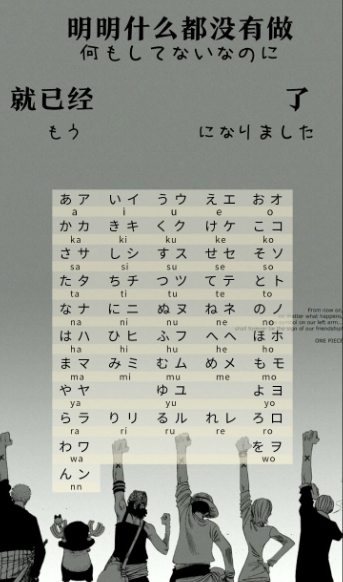 明明什么都没有做
何もしてないなのに
就已经 了
もう になりました
あア いイ うウ えエ おオ
a i u e o
かカ きキ くク けケ こコ
ka ki ku ke ko
さサ しシ すス せセ そソ
sa si su se so
たタ ちチ つツ てテ とト
ta ti tu te to
なナ にニ ぬヌ ねネ のノ
na ni nu ne no
はハ ひヒ ふフ へヘ ほホ
ha hi hu he ho
まマ みミ むム めメ もモ
ma mi mu me mo
やヤ ゆユ よヨ
ya yu yo
らラ りリ るル れレ ろロ
ra ri ru re ro
わワ をヲ
wa wo
んン
nn
From now on,
matter what happens,
on our left arm...
sign of our friendship
ONE PIECE